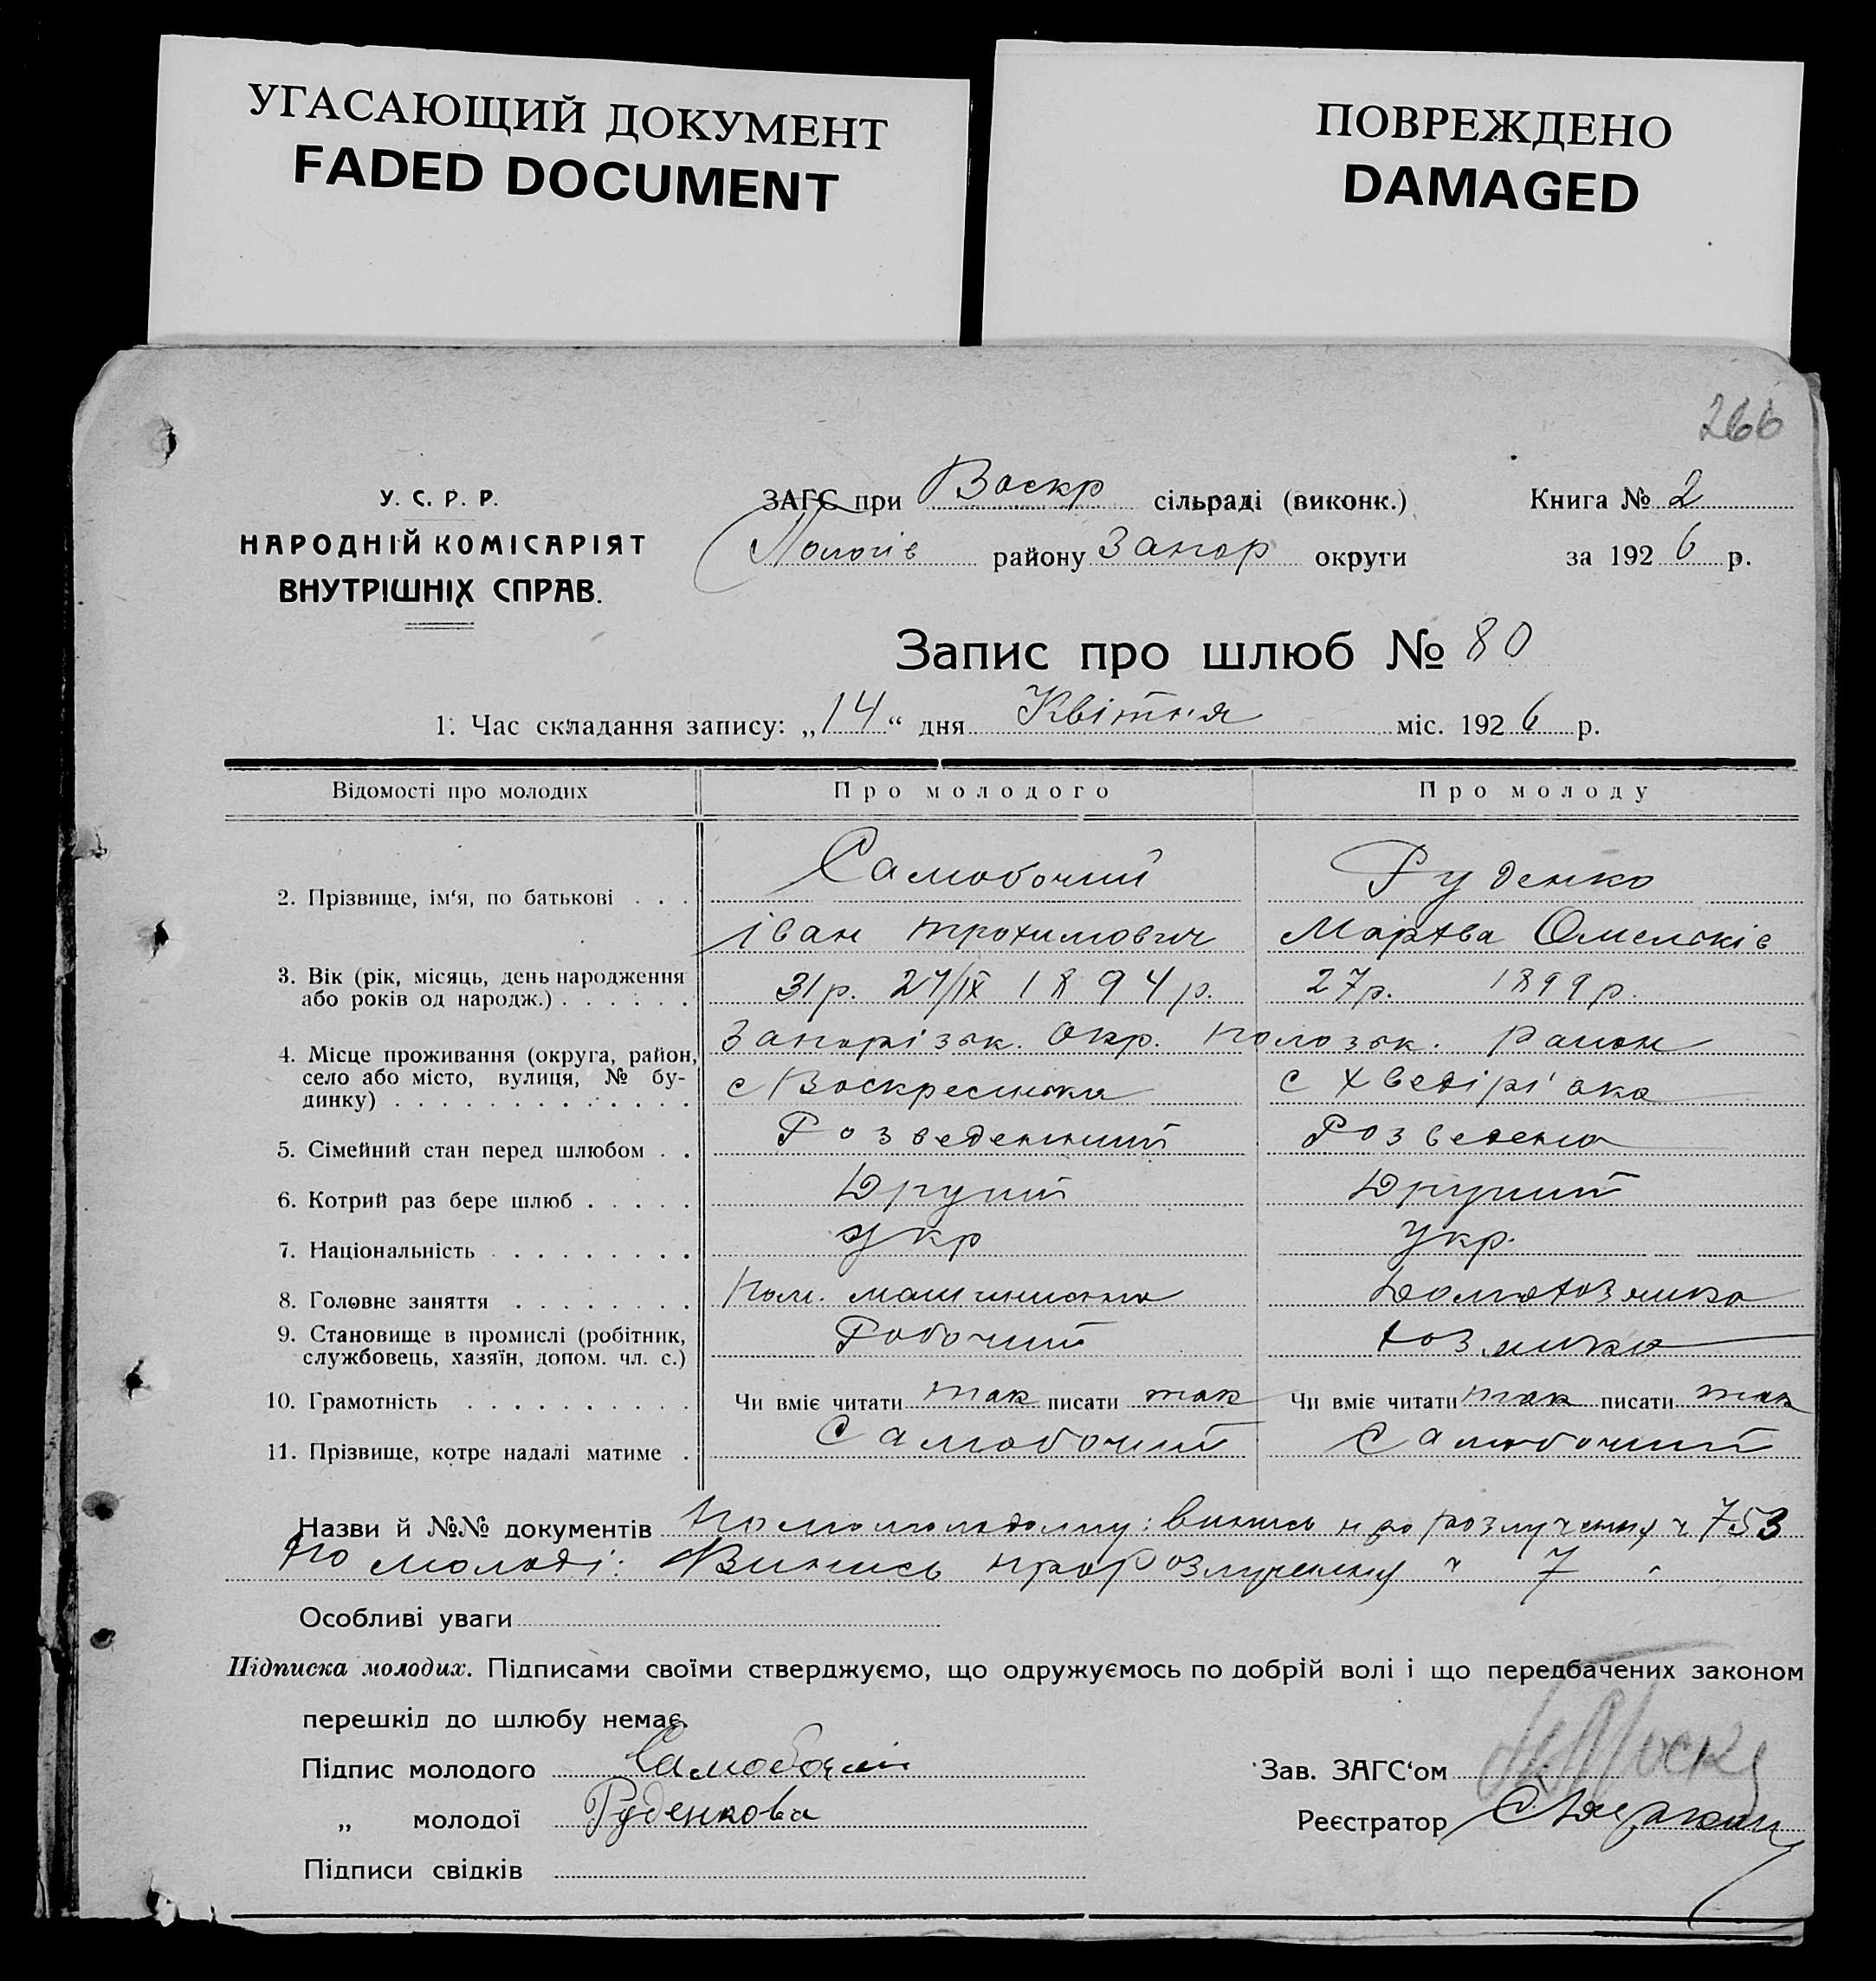 УГАСАЮЩИЙ ДОКУМЕНТ
FADED DOCUMENT
ПОВРЕЖДЕНО
DAMAGED
266
У. С. Р. Р.
НАРОДНІЙ КОМІСАРІЯТ
ВНУТРІШНІХ СПРАВ.
ЗАГС при Воскр сільраді (виконк.)
Пологів району Запор округи
Книга № 2
за 1926 р.
Запис про шлюб № 80
1. Час складання запису: „14“ дня Квітня міс. 1926 р.
Відомості про молодих Про молодого Про молоду
2. Прізвище, ім‘я, по батькові . . . Самобочий Руденко
Іван Трохимович Мархва Омельків
3. Вік (рік, місяць, день народження або років од народж.) . . . . . . 31р. 27/IX 1894р. 27р. 1899р.
4. Місце проживання (округа, район, Запорізьк. Окр. Полозьк. Район
село або місто, вулиця, № бу-
динку) . . . . . . . . . . . . . с Воскресинка с Хведірі'вка
5. Сімейний стан перед шлюбом . . Розведенний Розведена
6. Котрий раз бере шлюб . . . . . Другий Другий
7. Національність . . . . . . . . . Укр Укр.
8. Головне заняття . . . . . . . . Пом. машиниста Домохозяйка
9. Становище в промислі (робітник,
службовець, хазяїн, допом. чл. с.) Робочий хозяйка
10. Грамотність . . . . . . . . . . Чи вміє читати так писати так Чи вміє читати так писати так
11. Прізвище, котре надалі матиме . Самобочий Самобочий
Назви й №№ документів По молодому: Випись про розлучення ч 753
По молоді: Випись про розлучення ч 7
Особливі уваги
Підписка молодих. Підписами своїми стверджуємо, що одружуємось по добрій волі і що передбачених законом
перешкід до шлюбу немає.
Підпис молодого Самобочий
Зав. ЗАГС‘ом
„ молодої Руденкова
Реєстратор
Підписи свідків